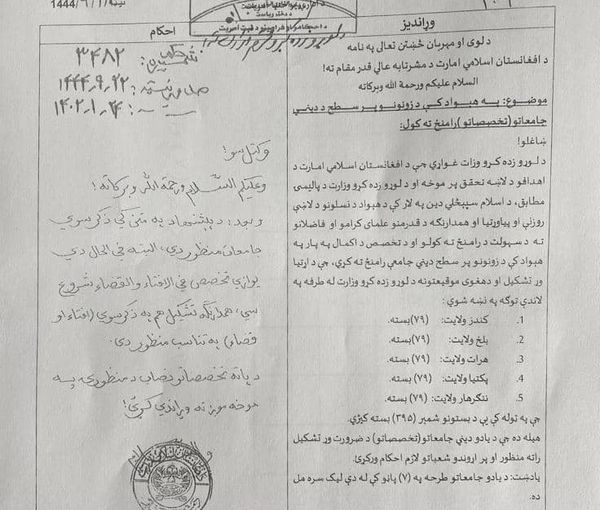 احکام
وړاندیز
د لوی او مهربان څښتن تعالی په نامه
د افغانستان اسلامي امارت د مشرتابه عالي قدر مقام ته!
السلام علیکم ورحمة الله وبرکاته
موضوع: په هېواد کې د زونونو پر سطح د دیني
جامعاتو (تخصصاتو) رامنځ ته کول:
ښاغلو!
د لوړو زده کړو وزارت غواړي چې د افغانستان اسلامي امارت د
اهدافو د لاښه تحقق پر موخه او د لوړو زده کړو وزارت د پالیسی
مطابق، د اسلام سپېڅلي دین په لار کې د هېواد د نسلونو د لاښې
روزنې او پیاوړتیا او همدارنګه د قدرمنو علمای کرامو او فاضلانو
ته د سهولت د رامنځ ته کولو او د تخصص د اکمال په پار په
هېواد کې د زونونو پر سطح دیني جامعې رامنځ ته کړي، چې د اړتیا
وړ تشکیل او دهغوی موقیعتونه د لوړو زده کړو وزارت له طرفه په
لاندې توګه په نښه شوي:
1. کندز ولایت: (۷۹) بسته.
2. بلخ ولایت: (۷۹) بسته.
3. هرات ولایت: (۷۹) بسته.
4. پکتیا ولایت: (۷۹) بسته.
5. ننګرهار ولایت: (۷۹) بسته.
چې په ټوله کې یې د بستونو شمېر (۳۹۵) بسته کیږي.
هیله ده چې د یادو دیني جامعاتو (تخصصاتو) د ضرورت وړ تشکیل
راته منظور او پر اړوندو شعباتو لازم احکام ورکړئ.
یادښت: د یادو جامعاتو طرحه په (۷) پاڼو کې له دې لیک سره مل
ده.
۳۴۸۲
۱۴۴۴٫۹٫۲۲
۱۴۰۲٫۱٫۲۴
وکتل سو!
وعلیکم السلام ورحمة الله وبرکاته!
وروسته د پېشنهاد په متن کې ذکر سوي
جامعات منظور دي، البته في الحال دي
یوازي تخصص في الافتاء والقضاء شروع
سي، همدارنګه تشکیل هم په ذکر سوي (افتاء او
قضاء) په تناسب منظور دی.
د پاته تخصصاتو نصاب د منظورۍ په
موخه موږ ته وړاندي کړئ!